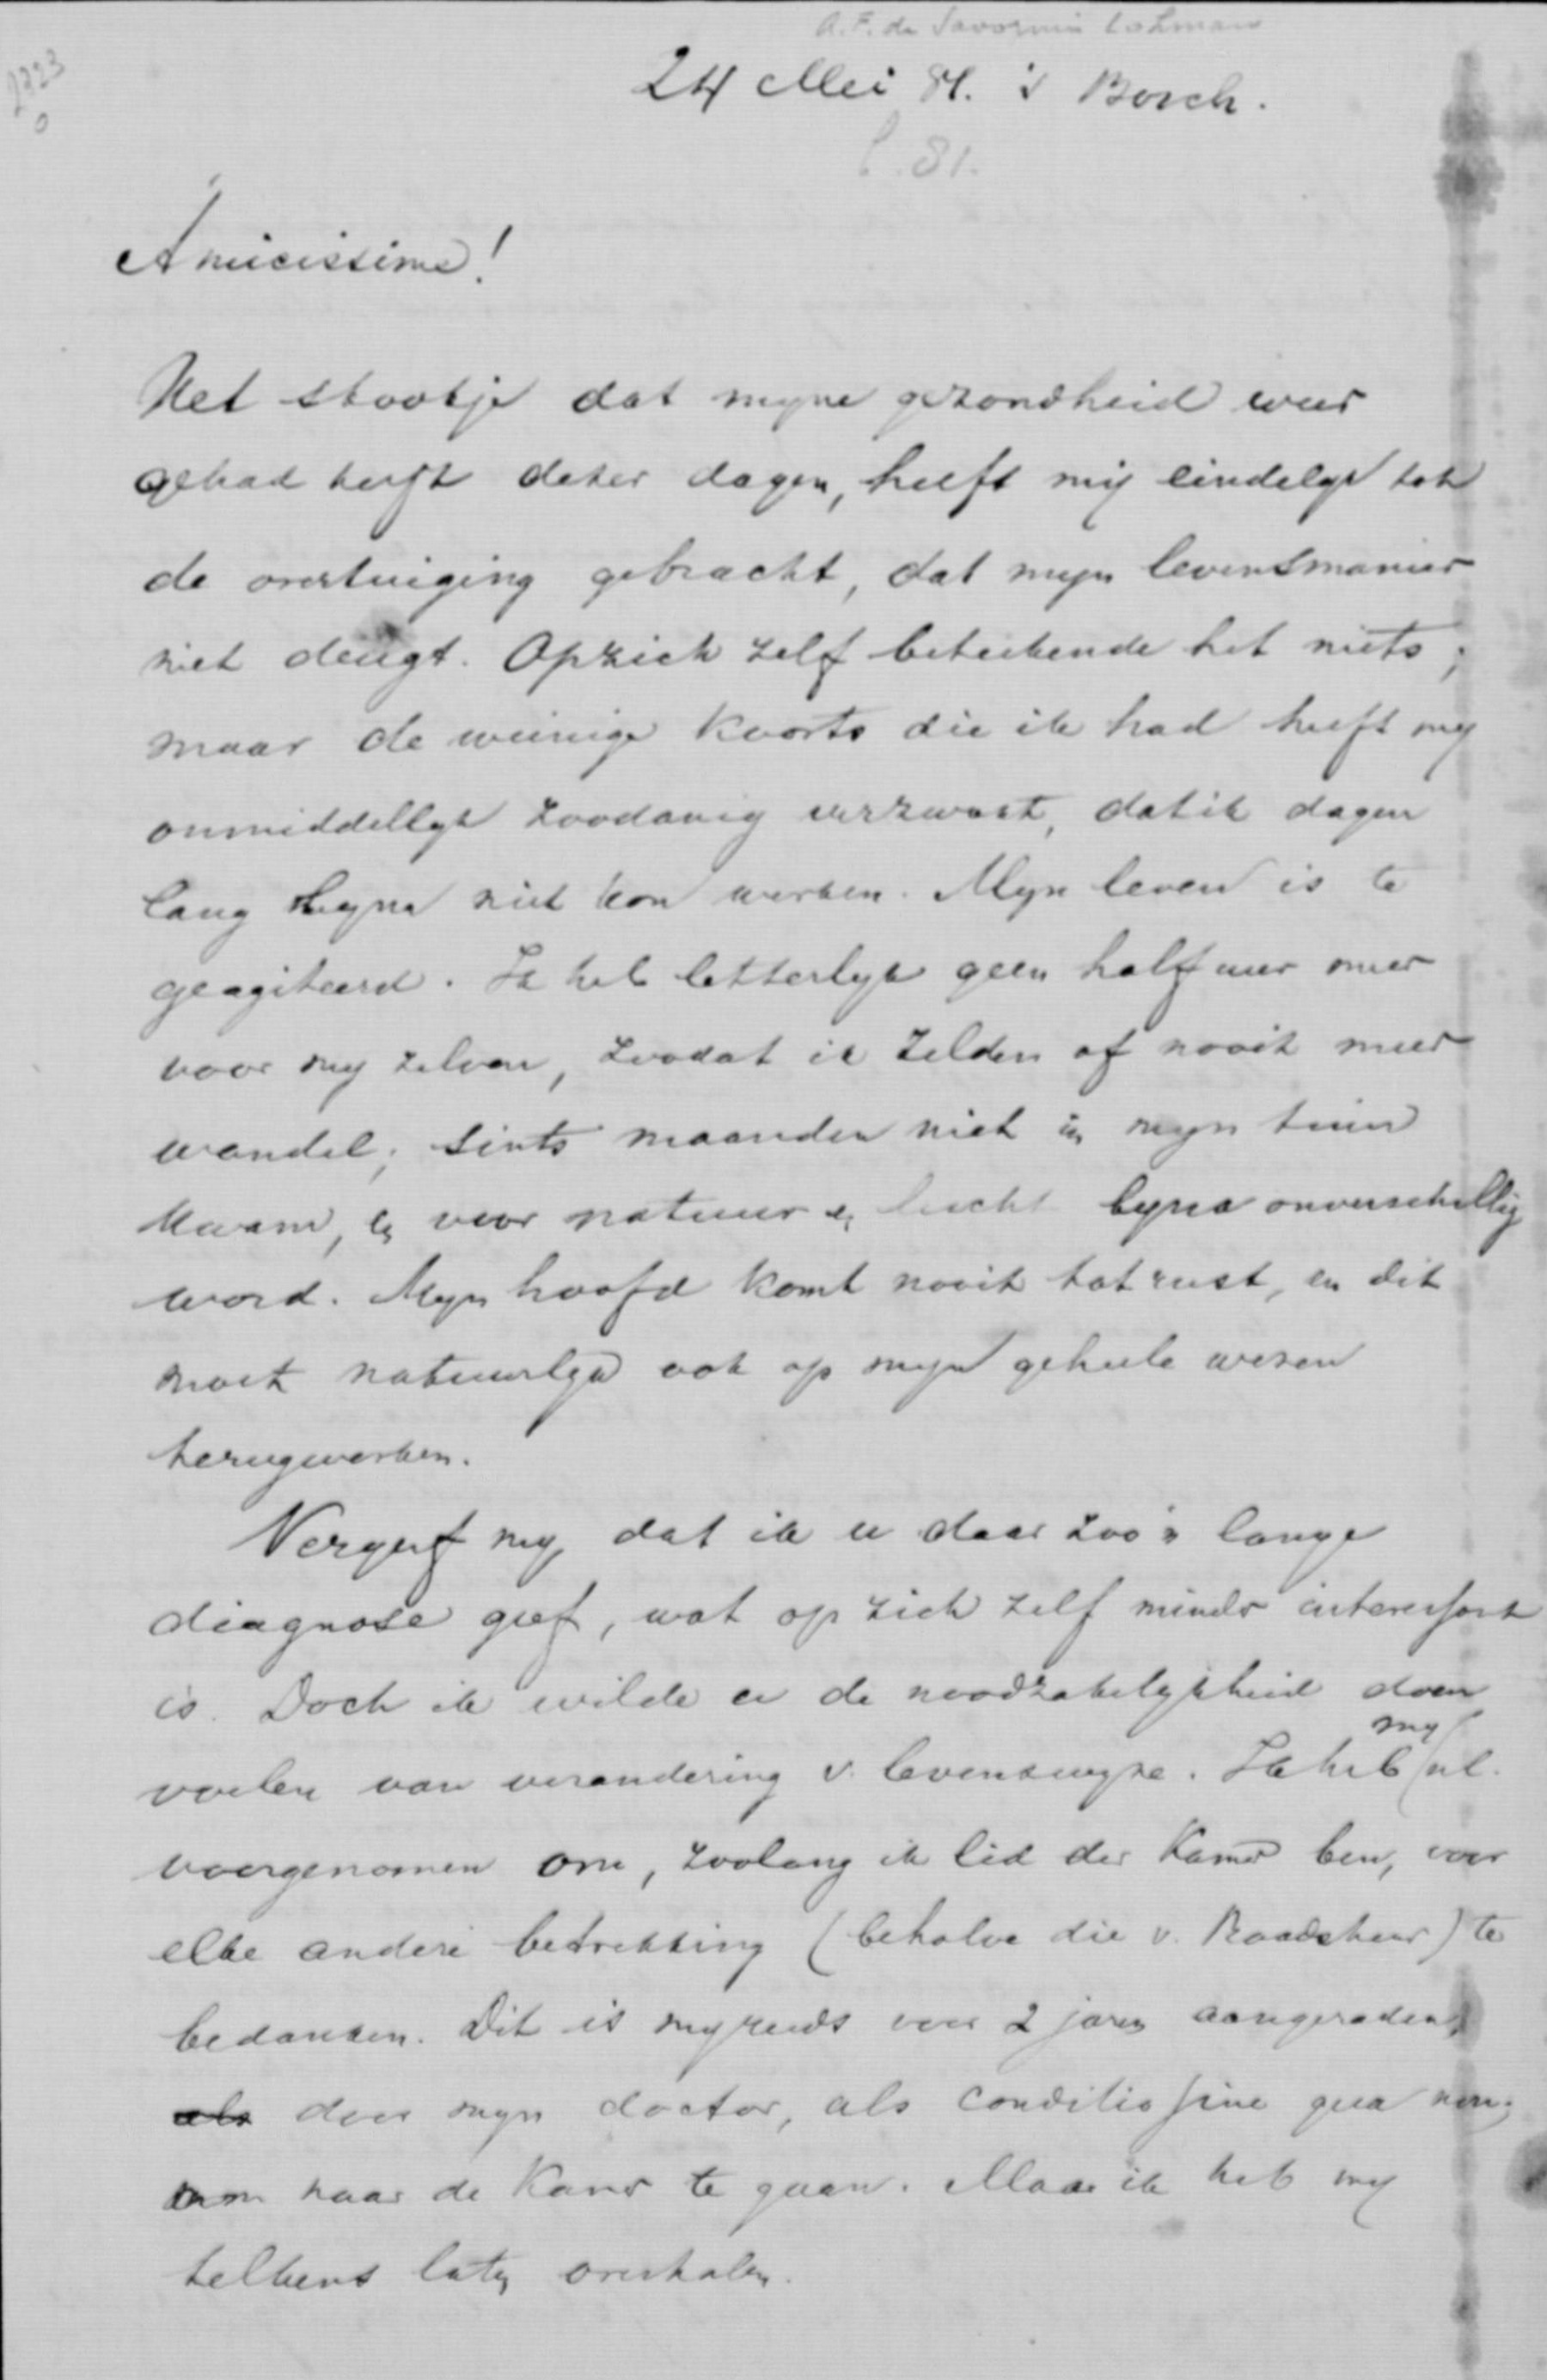 A.F. de Savornin Lohman
2723
0
24 Mei 81. 's Bosch.
81.
Amicissime!
Het stootje dat myne gezondheid weer
gehad heeft dezer dagen, heeft mij eindelyk tot
de overtuiging gebracht, dat myn levensmanier
niet deugt. Opzich zelf beteekende het niets;
maar de weinige koorts die ik had heeft my
onmiddellyk zoodanig verzwakt, dat ik dagen
lang byna niet kon werken. Myn leven is te
geagiteerd. Ik heb letterlyk geen half uur meer
voor my zelven, zoodat ik zelden of nooit meer
wandel; sints maanden niet in myn tuin
kwam, en voor natuur en lucht byna onverschillig
word. Myn hoofd komt nooit tot rust, en dit
moet natuurlyk ook op myn geheele wezen
terugwerken.
Vergeef my, dat ik u daar zoo'n lange
diagnose geef, wat op zich zelf minder interessant
is. Doch ik wilde u de noodzakelykheid doen
voelen van verandering v. levenswyze. Ik heb my nl.
voorgenomen om, zoolang ik lid der Kamer ben, voor
elke andere betrekking (behalve die v. Raadsheer) te
bedanken. Dit is my reeds voor 2 jaren aangeraden,
als door myn doctor, als conditio sine qua non,
om naar de Kamer te gaan. Maar ik heb my
telkens laten overhalen.